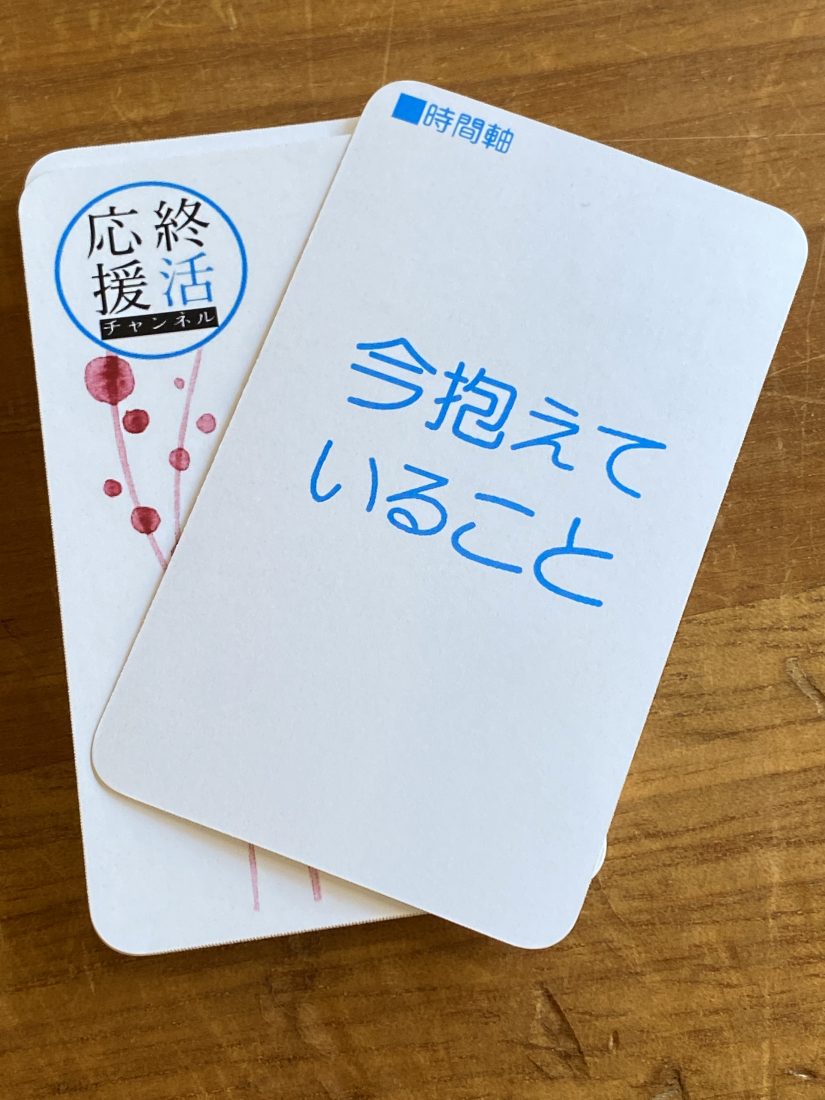 終活
応援
チャンネル
■時間軸
今抱えて
いること